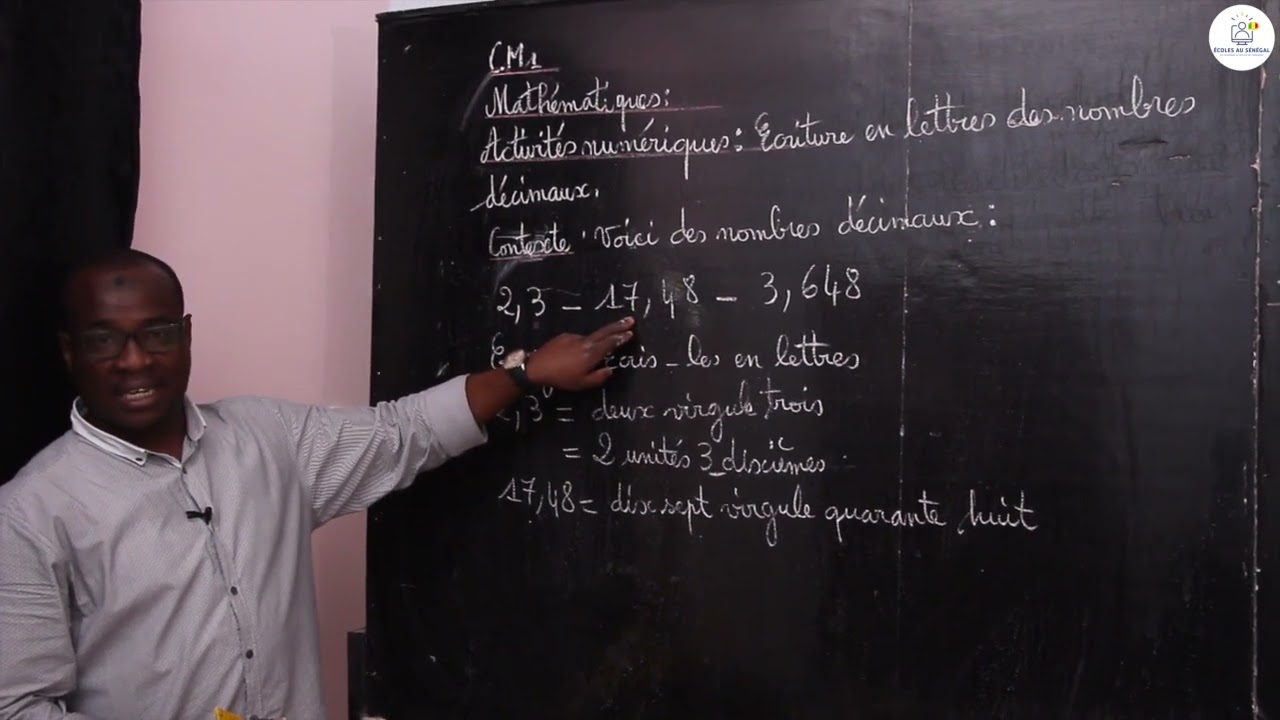 CM1
Mathématiques:
Activités numériques: Ecriture en lettres des nombres
décimaux.
Contexte: Voici des nombres décimaux:
2,3 - 17,48 - 3,648
les en lettres
2,3 = deux virgule trois
= 2 unités 3 dixièmes
17,48 = dix sept virgule quarante huit
ÉCOLES AU SÉNÉGAL